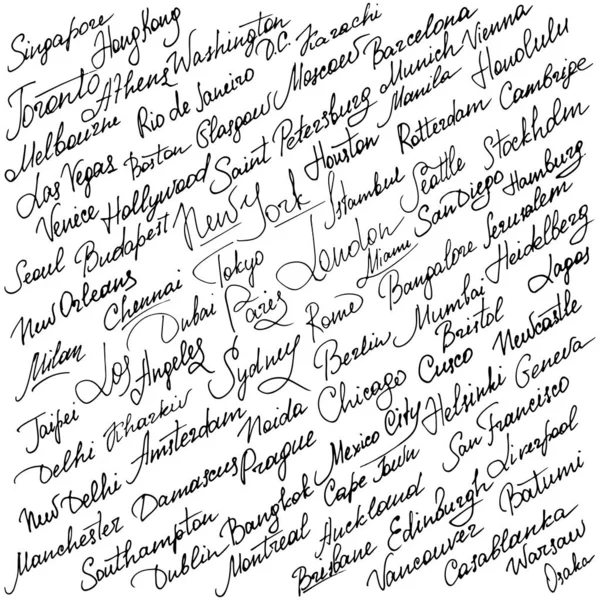 Singapore Hong Kong
Toronto Athens Washington D.C. Karachi
Melbourne Rio de Janeiro Moscow Barcelona Vienna
Las Vegas Boston Glasgow Saint Petersburg Munich Honolulu
Venice Hollywood Houston Manila
Seoul Budapest New York Istanbul Rotterdam Cambripe
New Orleans Chennai Tokyo London Seattle Stockholm
Milan Dubai Paris Miami San Diego Hamburg
Los Angeles Rome Bangalore Jerusalem
Taipei Sydney Berlin Mumbai Heidelberg
Delhi Kharkiv Chicago Cusco Bristol Lagos
New Delhi Amsterdam Noida Newcastle
Manchester Damascus Prague Mexico City Helsinki Geneva
Southampton Bangkok Cape Town San Francisco
Dublin Montreal Auckland Edinburgh Liverpool
Brisbane Vancouver Batumi
Casablanka
Warsaw
Osaka